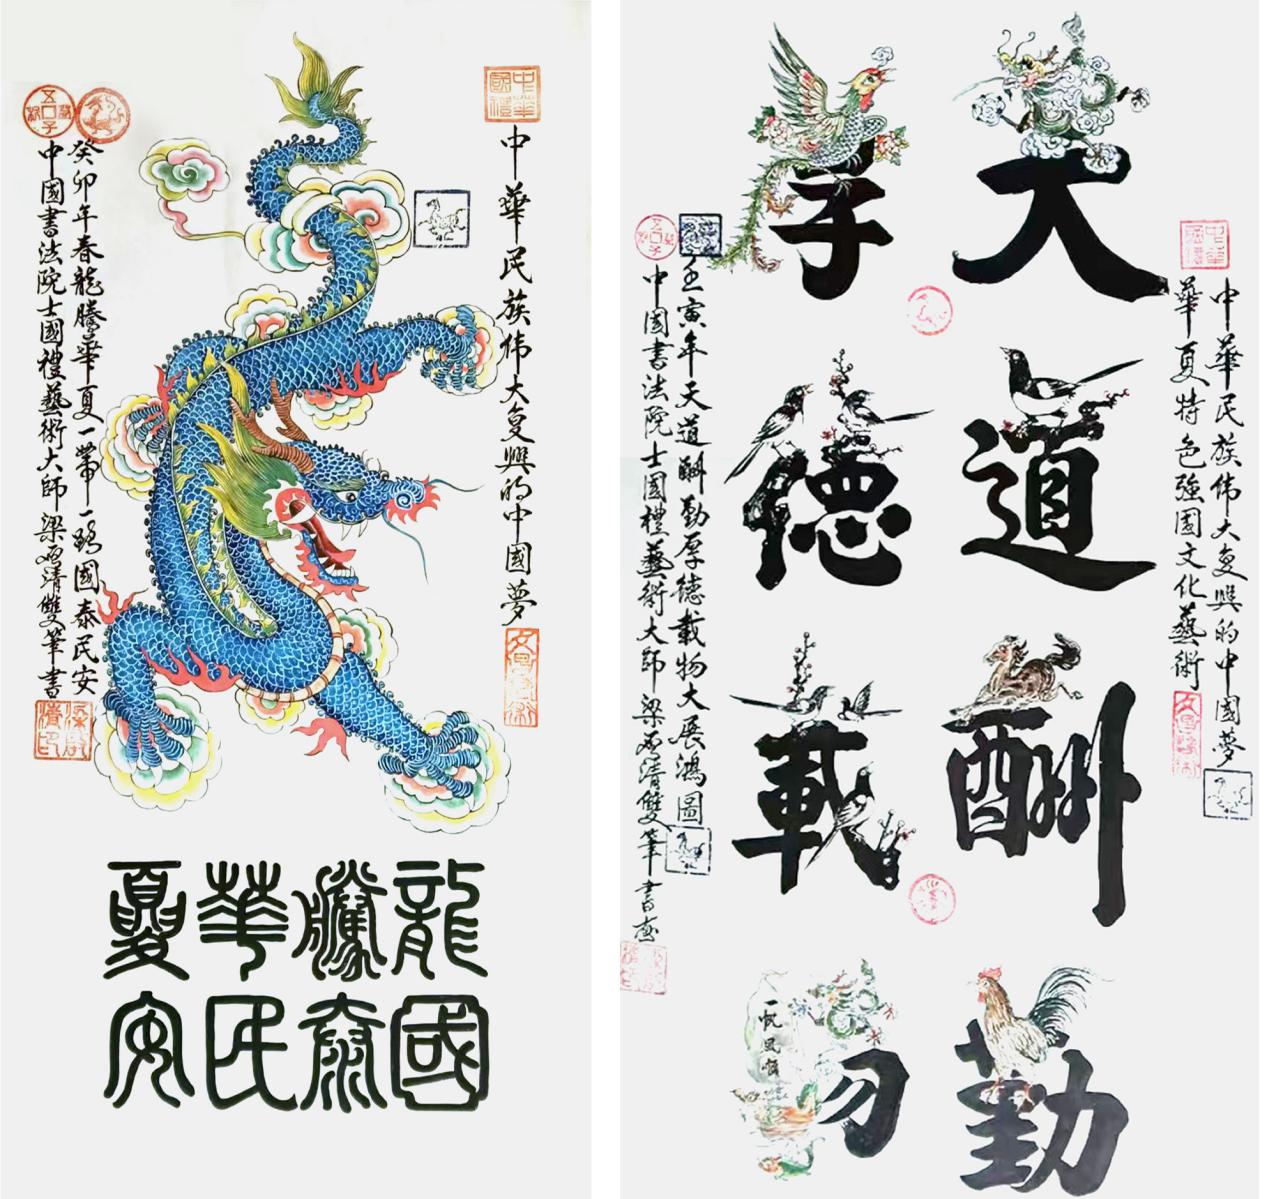 中華國禮
中華民族伟大复興的中國夢
癸卯年春龍騰華夏一帶一路國泰民安
中國書法院士國禮藝術大師梁清雙筆書
龍騰華夏
國泰民安
中華國禮
中華民族伟大复興的中國夢
華夏特色強國文化藝術
天道酬勤
厚德載物
一帆風順
壬寅年天道酬勤厚德載物大展鴻圖
中國書法院士國禮藝術大師梁清雙筆書畫